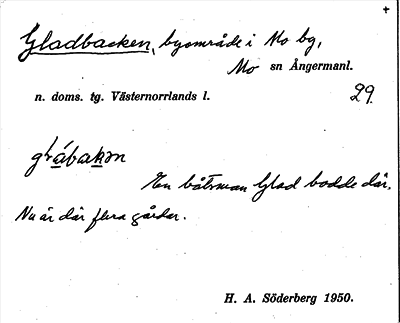 +
Gladbacken, byområde i Mo by,
Mo sn Ångermanl.
n. doms. tg. Västernorrlands l. 29.
En båtsman Glad bodde där.
Nu är där flera gårdar.
H. A. Söderberg 1950.